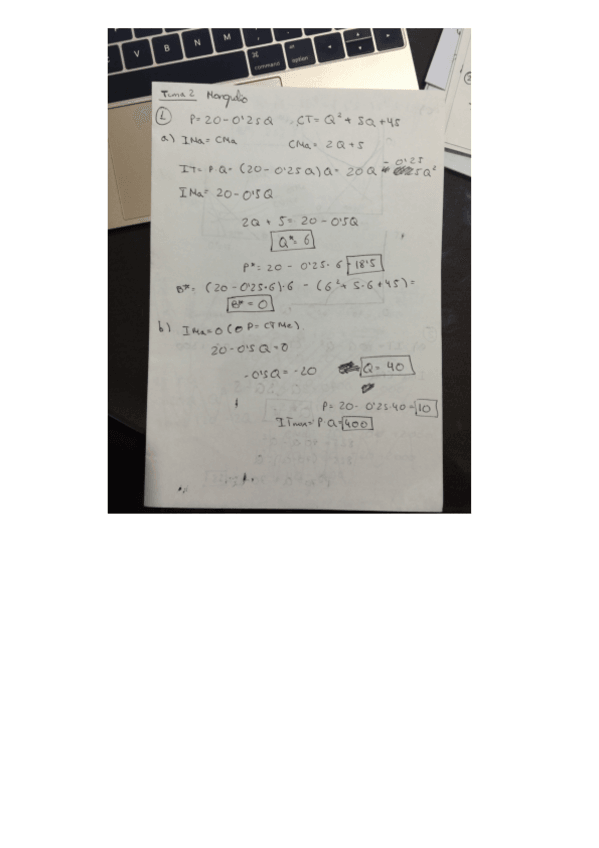 V B N M
command option
Tema 2 Monopolio
1 P=20-0'25Q CT=Q²+5Q+45
a) IMa=CMa CMa=2Q+5
IT=P·Q=(20-0'25Q)Q=20Q -0'25Q²
IMa=20-0'5Q
2Q+5=20-0'5Q
Q*=6
P*=20-0'25·6=18'5
B*=(20-0'25·6)·6-(6²+5·6+45)=
B*=0
b) IMa=0 (o P=CTMe)
20-0'5Q=0
-0'5Q=-20 Q=40
P=20-0'25·40=10
ITmax=P·Q=400